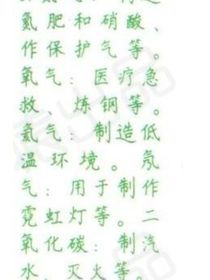 氮肥和硝酸、
作保护气等。
氧气：医疗急
救、炼钢等。
氦气：制造低
温环境。氖
气：用于制作
霓虹灯等。二
氧化碳：制汽
水、灭火等